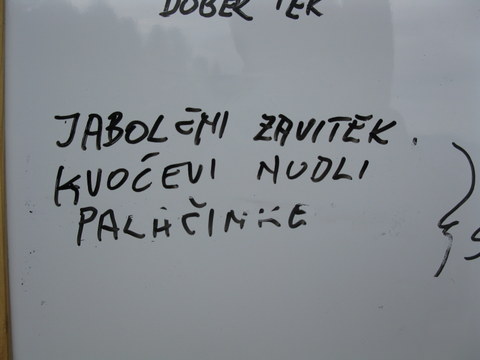 DOBER TEK
JABOLČNI ZAVITEK.
KVOČEVI NUDLI
PALAČINKE